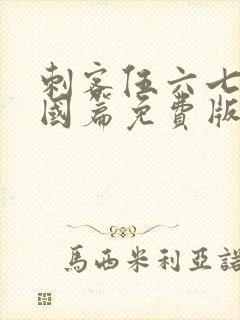 刺客伍六七
國篇免費版
馬西米利亞諾